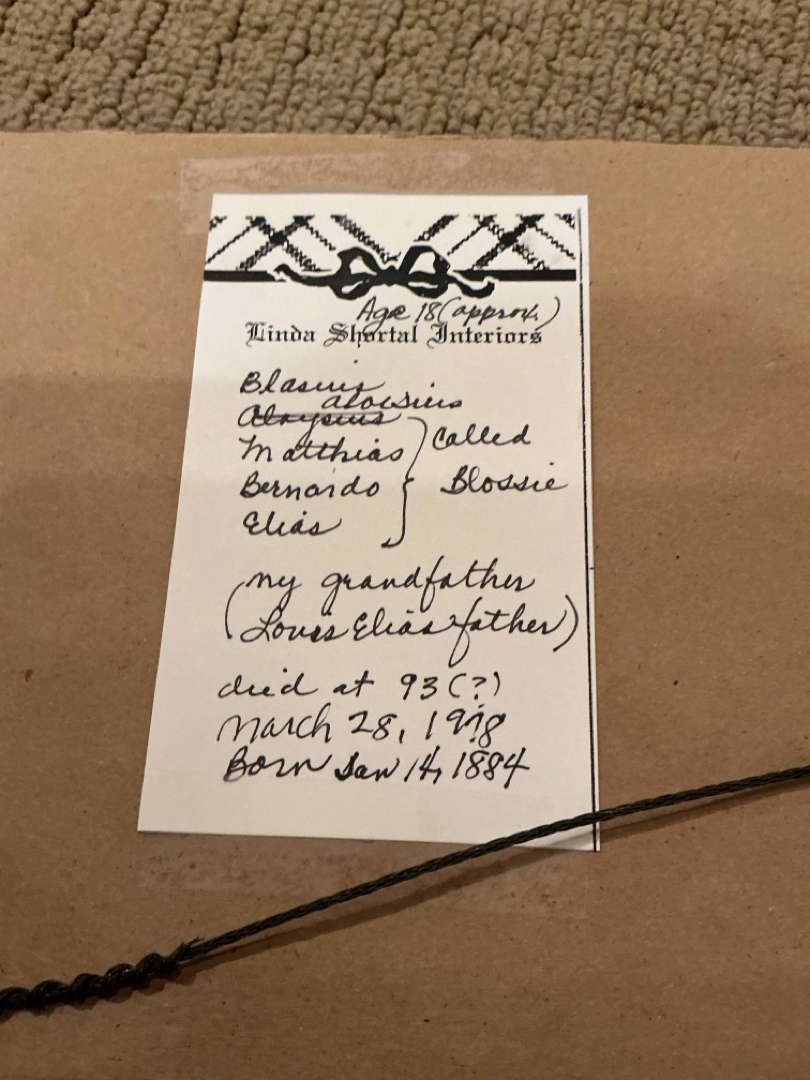 Age 18 (approx.)
Linda Shortal Interiors
Blasius
aloisius
Aloysius
Matthias
Bernardo
Elias
called
Blossie
(my grandfather
Louis Elias father)
died at 93 (?)
March 28, 1978
Born Jan 14, 1884